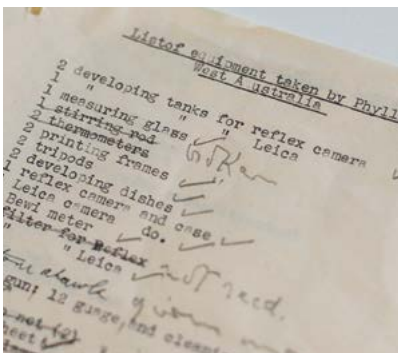 Listof equipment taken by Phyll
West Australia
2 developing tanks for reflex camera
1 " " " Leica
1 measuring glass broken
1 stirring rod
2 thermometers
2 printing frames
2 tripods
2 developing dishes
1 reflex camera and case
Leica camera do.
Bewi meter
filter for Reflex
" " Leica not recd.
gun; 12 guage, and cleani